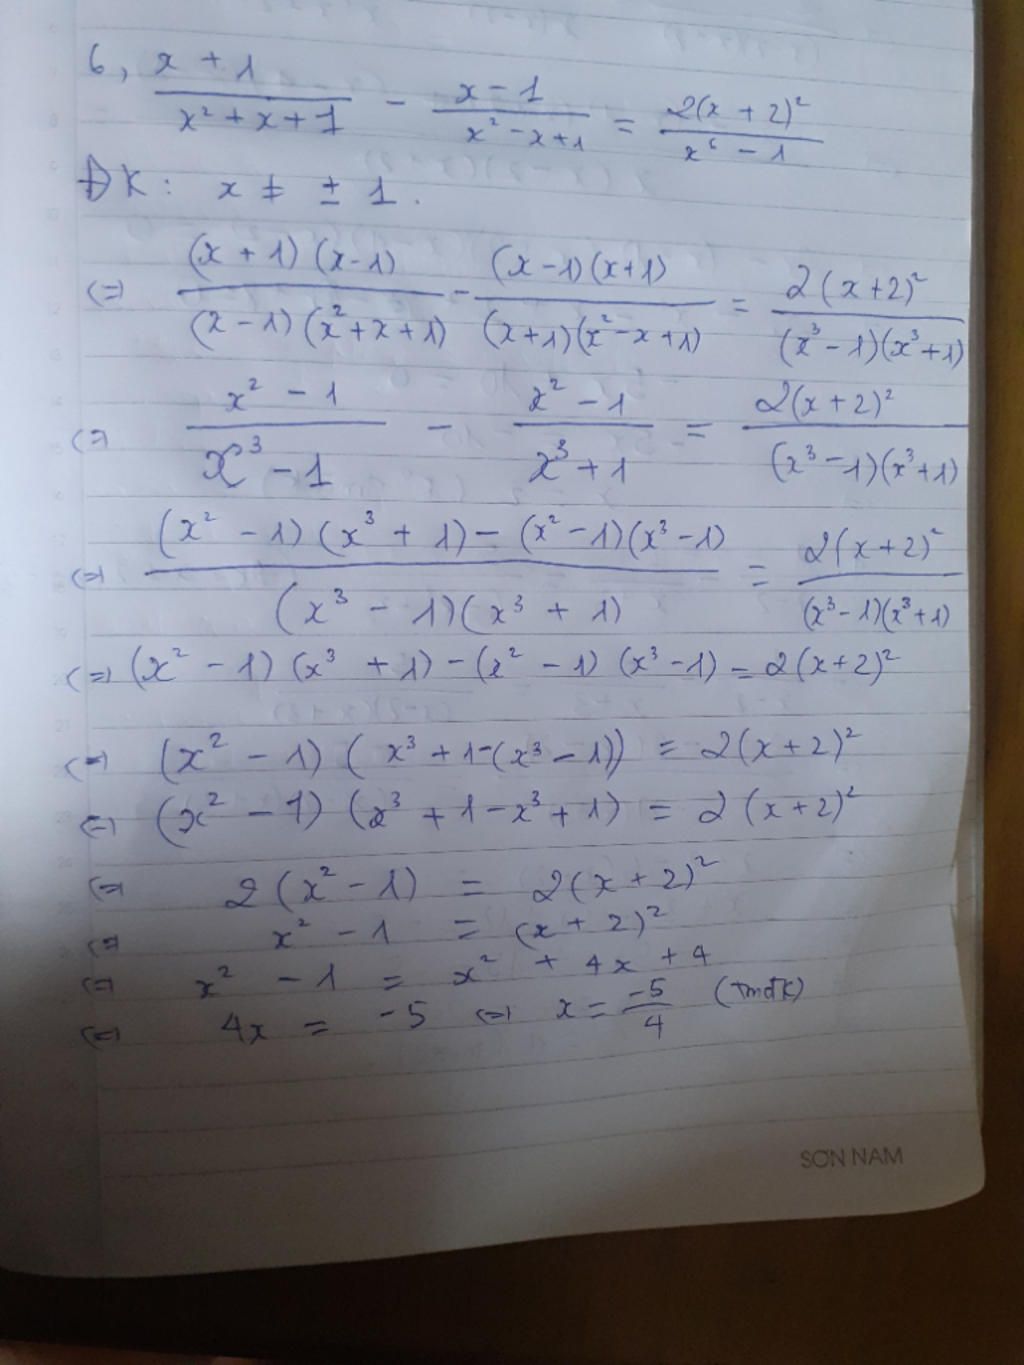 6, x + 1 / x² + x + 1 - x - 1 / x² - x + 1 = 2(x + 2)² / x⁶ - 1
ĐK: x ≠ ± 1.
<=> (x + 1)(x-1) / (x - 1)(x² + x + 1) - (x - 1)(x+1) / (x+1)(x² - x + 1) = 2(x+2)² / (x³ - 1)(x³+1)
<=> x² - 1 / x³ - 1 - x² - 1 / x³ + 1 = 2(x + 2)² / (x³ - 1)(x³+1)
<=> (x² - 1)(x³ + 1) - (x² - 1)(x³ - 1) / (x³ - 1)(x³ + 1) = 2(x + 2)² / (x³ - 1)(x³+1)
<=> (x² - 1)(x³ + 1) - (x² - 1)(x³ - 1) = 2(x+2)²
<=> (x² - 1)(x³ + 1 - (x³ - 1)) = 2(x + 2)²
<=> (x² - 1)(x³ + 1 - x³ + 1) = 2(x + 2)²
<=> 2(x² - 1) = 2(x + 2)²
<=> x² - 1 = (x + 2)²
<=> x² - 1 = x² + 4x + 4
<=> 4x = -5 <=> x = -5 / 4 (tmđk)
SON NAM